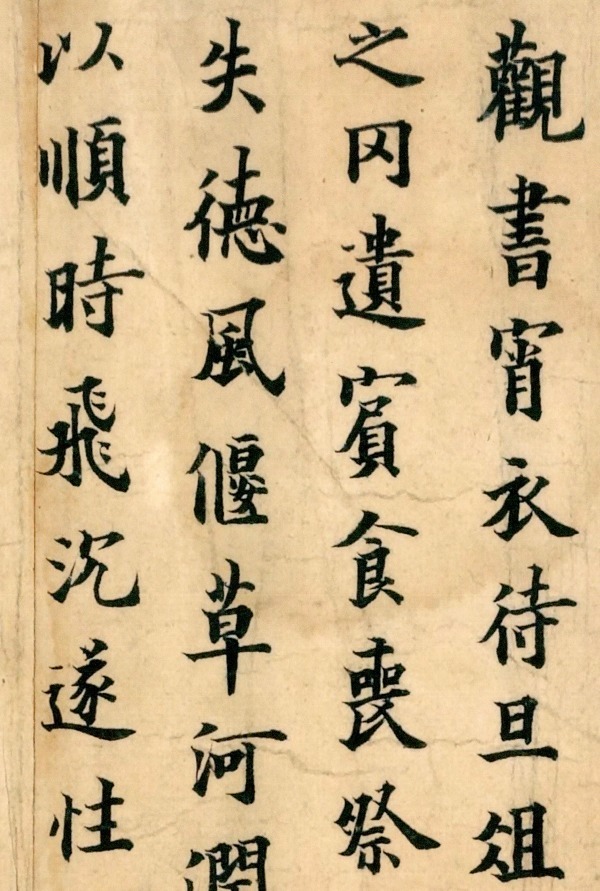 觀書宵衣待旦俎
之罔遺賓食喪祭
失徳風偃草河潤
以順時飛沉遂性